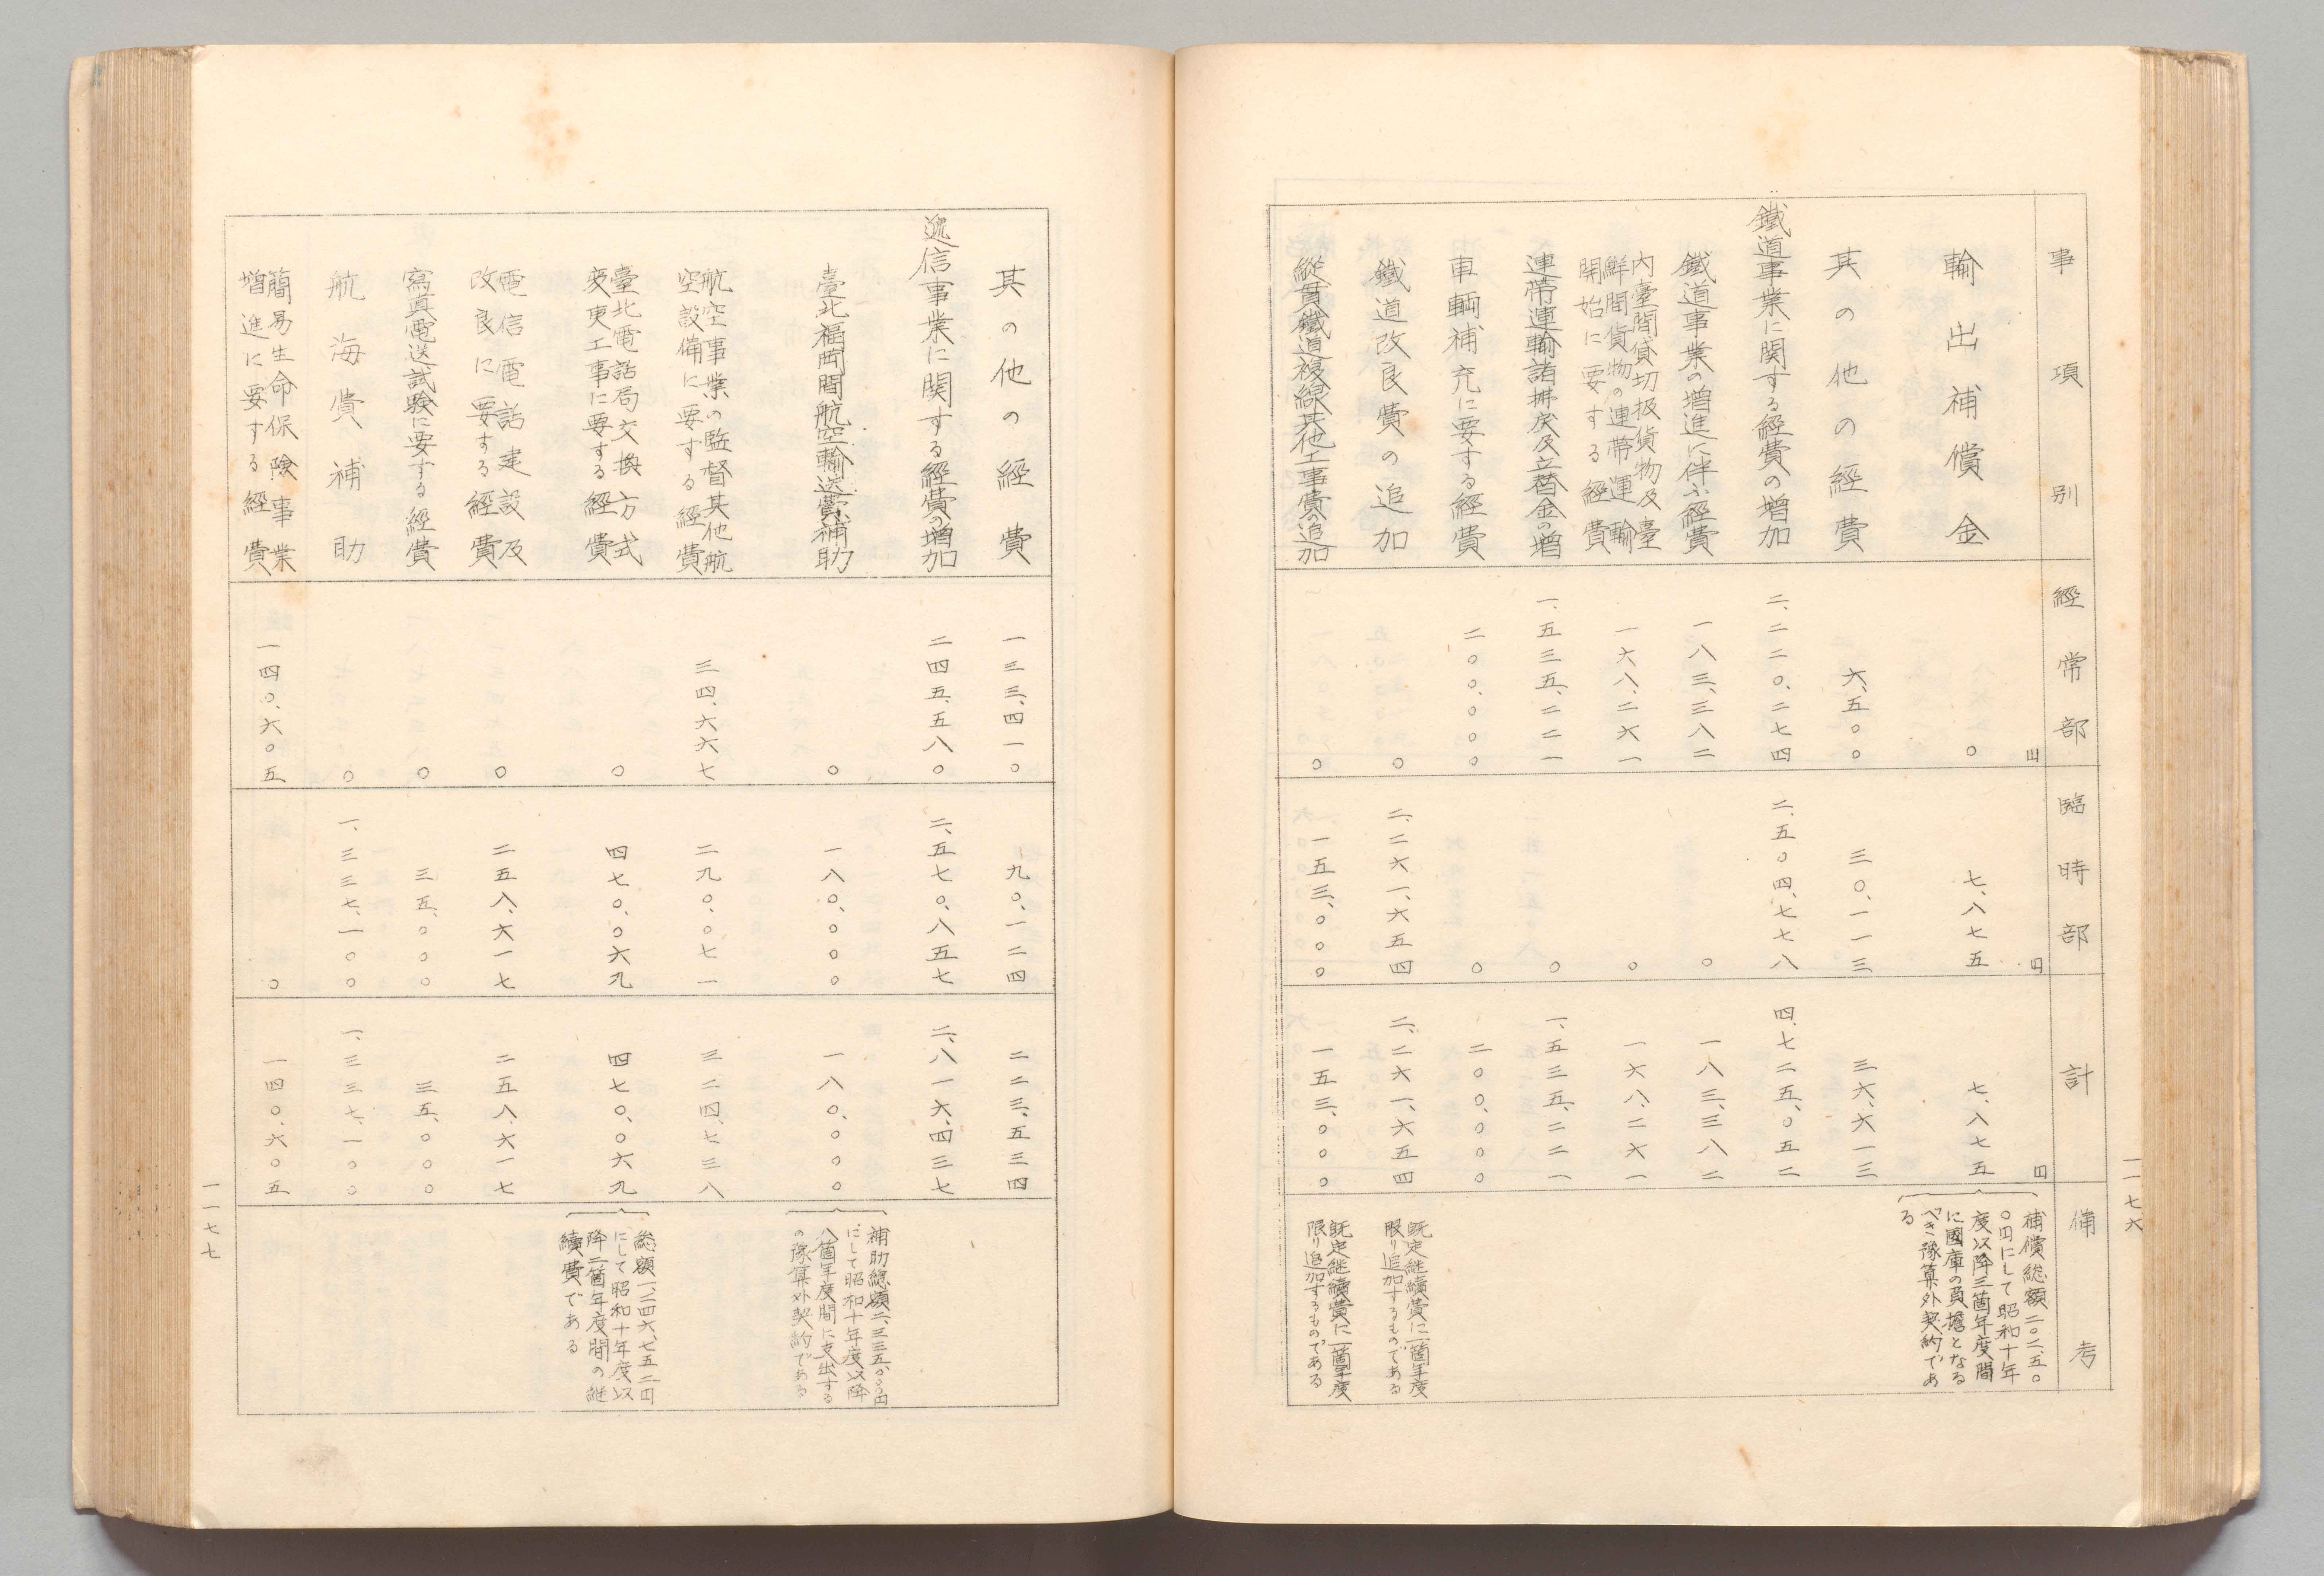 事項別
經常部
臨時部
計
備考
円
円
円
輸出補償金
〇
七、八七五
七、八七五
補償総額二〇二、五〇
〇円にして昭和十年
度以降三箇年度間
に國庫の負擔となる
べき豫算外契約であ
る
其の他の経費
六、五〇〇
三〇、一一三
三六、六一三
鐵道事業に関する經費の増加
二、二二〇、二七四
二、五〇四、七七八
四、七二五、〇五二
鐵道事業の増進に伴ふ經費
一八三、三八二
〇
一八三、三八二
内臺間貸切扱貨物及臺
鮮間貨物の連帯運輸
開始に要する經費
一六八、二六一
〇
一六八、二六一
連帯運輸諸拂戻及立替金の増
一、五三五、二二一
〇
一、五三五、二二一
車輌補充に要する經費
二〇〇、〇〇〇
〇
二〇〇、〇〇〇
鐵道改良費の追加
〇
二、二六一、六五四
二、二六一、六五四
既定継續費に一箇年度
限り追加するものである
縱貫鐵道複線其他工事費の追加
〇
一五三、〇〇〇
一五三、〇〇〇
既定継續費に一箇年度
限り追加するものである
一一七六
其の他の經費
一三三、四一〇
九〇、一二四
二二三、五三四
逓信事業に関する經費の増加
二四五、五八〇
二、五七〇、八五七
二、八一六、四三七
臺北福岡間航空輸送費補助
〇
一八〇、〇〇〇
一八〇、〇〇〇
補助總額二、三三五、〇〇〇円
にして昭和十年度以降
八箇年度間に支出する
の豫算外契約である
航空事業の監督其他航
空設備に要する經費
三四、六六七
二九〇、〇七一
三二四、七三八
臺北電話局交換方式
変更工事に要する經費
〇
四七〇、〇六九
四七〇、〇六九
総額一、二四六、七五二円
にして昭和十年度以
降二箇年度間の継
續費である
電信電話建設及
改良に要する經費
〇
二五八、六一七
二五八、六一七
寫真電送試験に要する經費
〇
三五、〇〇〇
三五、〇〇〇
航海費補助
〇
一、三三七、一〇〇
一、三三七、一〇〇
簡易生命保険事業
増進に要する經費
一四〇、六〇五
〇
一四〇、六〇五
一一七七